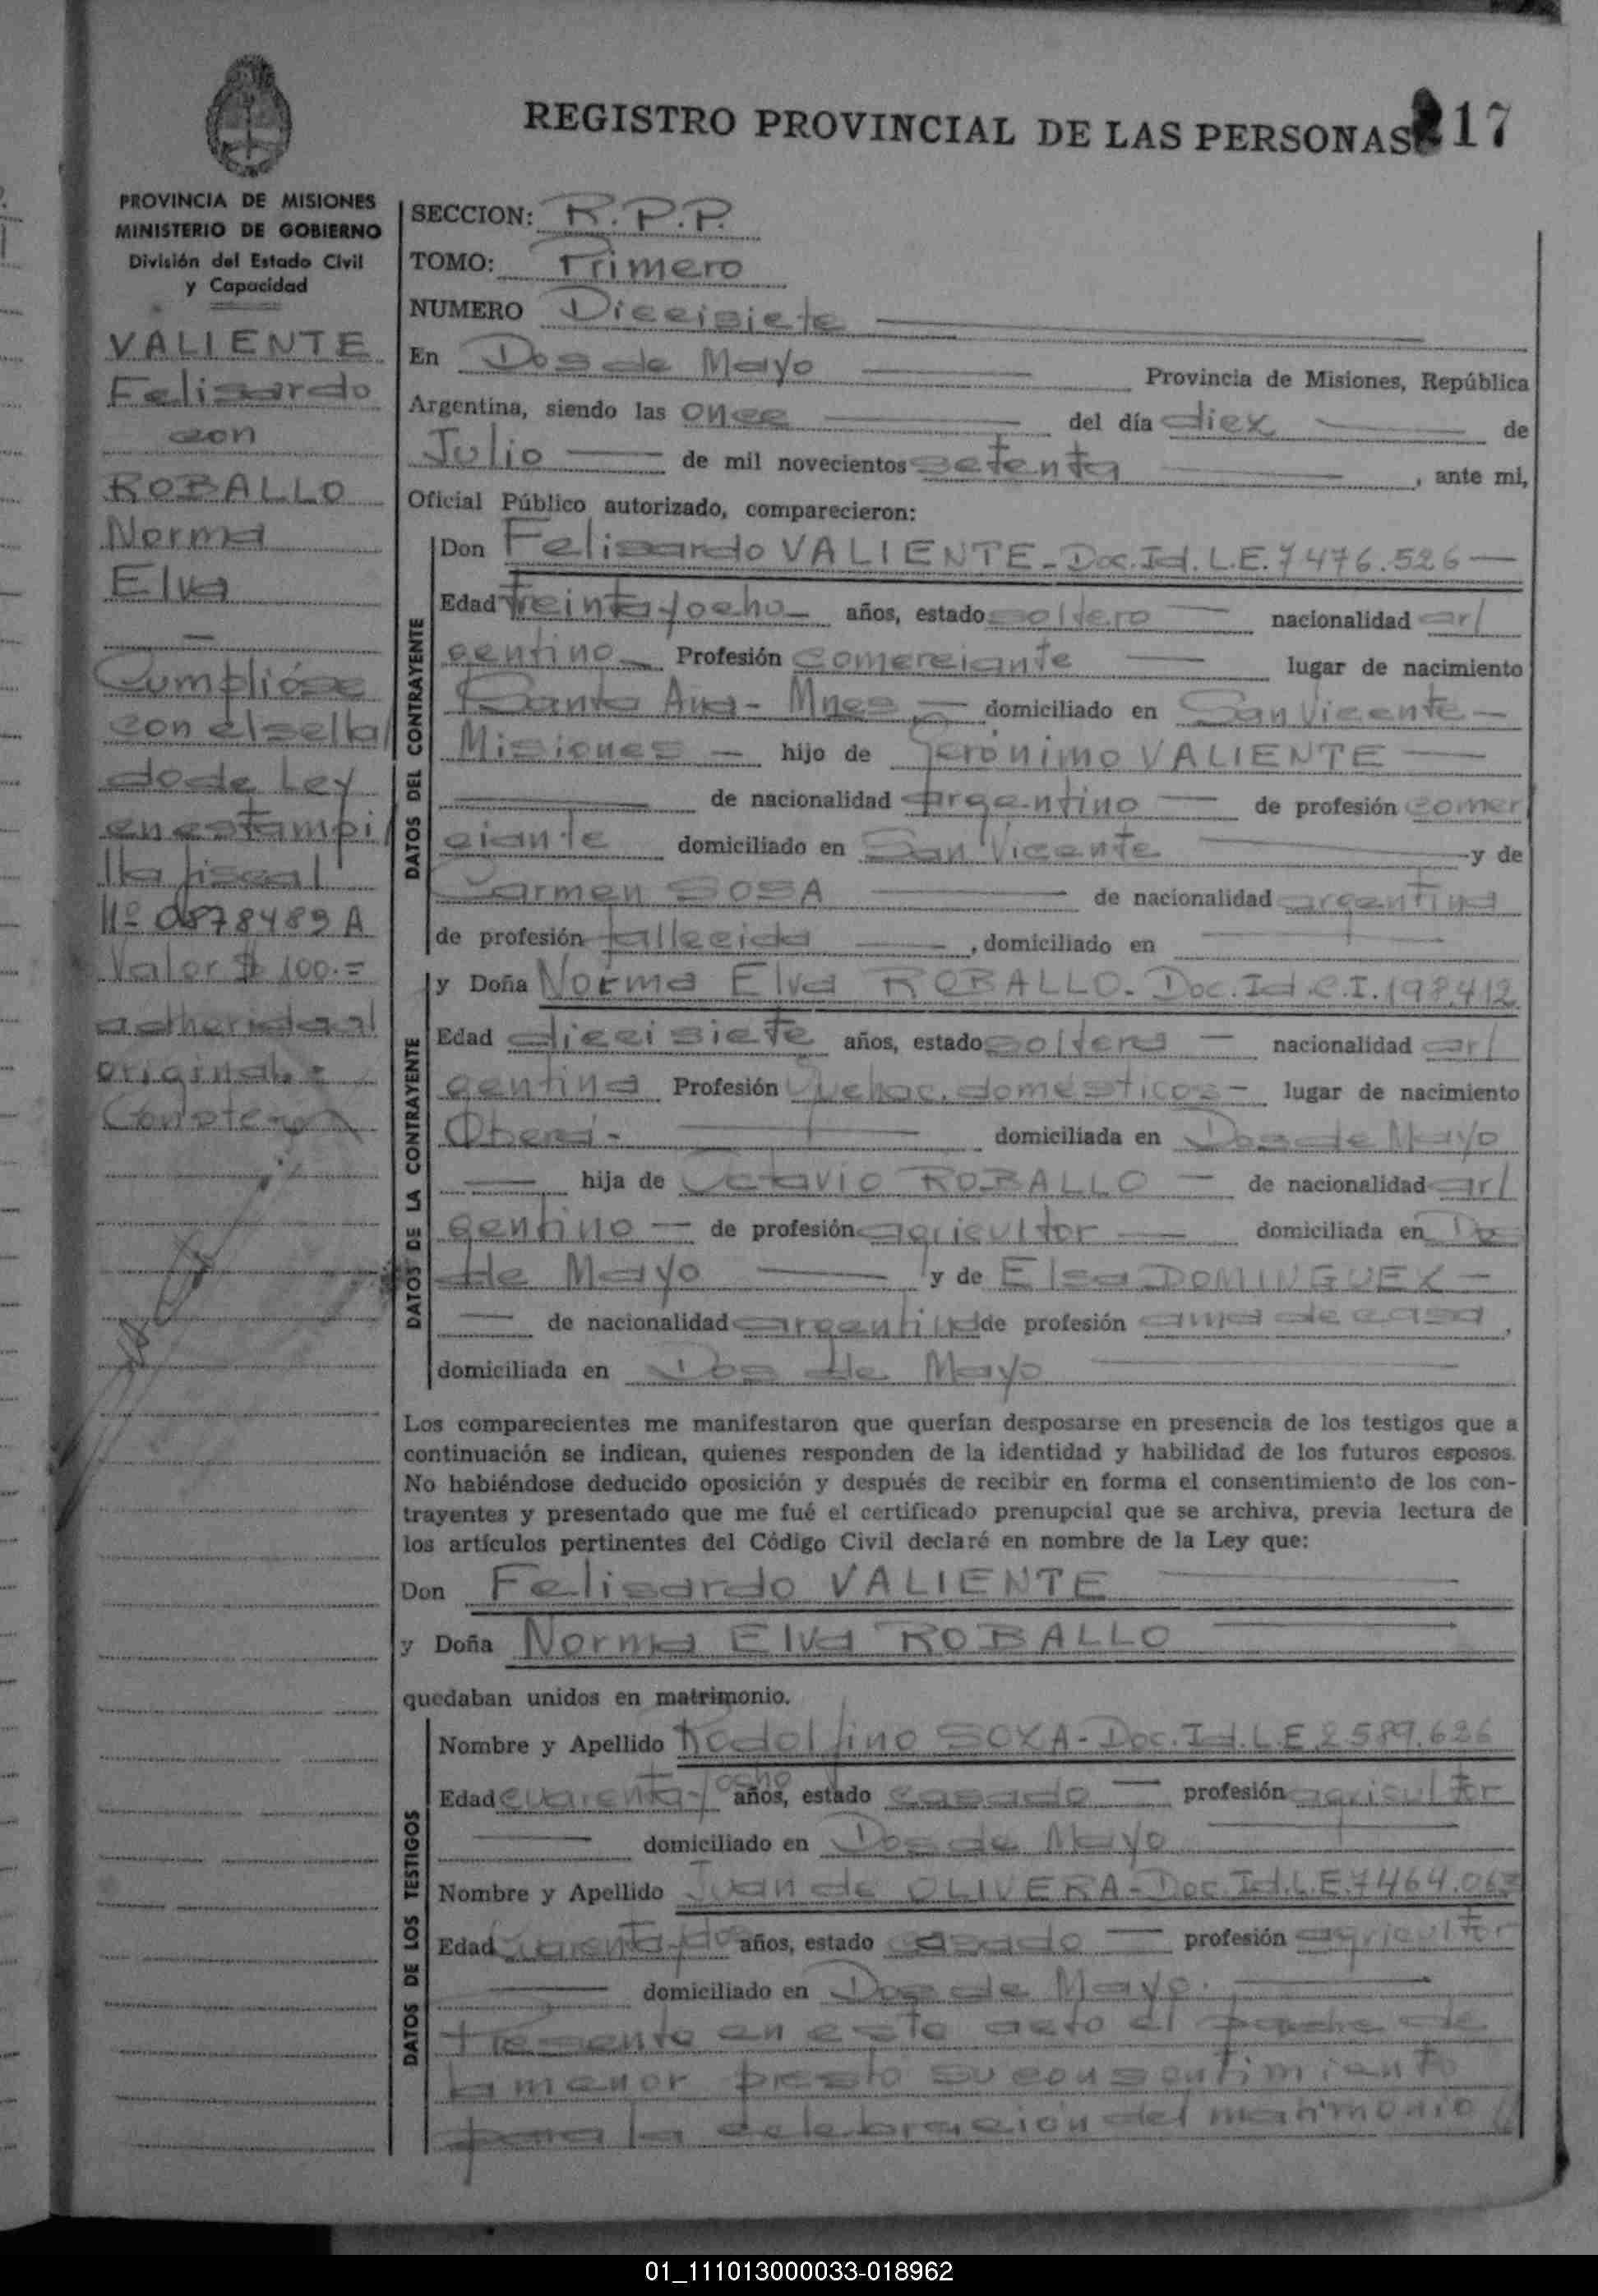 REGISTRO PROVINCIAL DE LAS PERSONAS 17
PROVINCIA DE MISIONES
MINISTERIO DE GOBIERNO
División del Estado Civil
y Capacidad
VALIENTE
Felisardo
con
ROBALLO
Norma
Elva
Cumplióse
con el sella/
do de Ley
en estampi/
lla fiscal
Nº 0878489 A
Valor $ 100.=
adherida al
original.=
Conste.
SECCION: R.P.P.
TOMO: Primero
NUMERO Diecisiete
En Dos de Mayo Provincia de Misiones, República
Argentina, siendo las once del día diez de
Julio de mil novecientos setenta, ante mi,
Oficial Público autorizado, comparecieron:
DATOS DEL CONTRAYENTE
Don Felisardo VALIENTE - Doc. Id. L.E. 7476.526
Edad treinta y ocho años, estado soltero nacionalidad ar/
gentino Profesión comerciante lugar de nacimiento
Santa Ana - Mnes domiciliado en San Vicente -
Misiones - hijo de Gerónimo VALIENTE
de nacionalidad argentino de profesión comer
ciante domiciliado en San Vicente y de
Carmen SOSA de nacionalidad argentina
de profesión fallecida, domiciliado en
DATOS DE LA CONTRAYENTE
y Doña Norma Elva ROBALLO - Doc. Id. C.I. 198.412
Edad diecisiete años, estado soltera nacionalidad ar/
gentina Profesión Quehac. domésticos - lugar de nacimiento
Oberá - domiciliada en Dos de Mayo
hija de Octavio ROBALLO de nacionalidad ar/
gentino de profesión agricultor domiciliada en Dos
de Mayo y de Elsa DOMINGUEZ -
de nacionalidad argentina de profesión ama de casa,
domiciliada en Dos de Mayo
Los comparecientes me manifestaron que querían desposarse en presencia de los testigos que a
continuación se indican, quienes responden de la identidad y habilidad de los futuros esposos.
No habiéndose deducido oposición y después de recibir en forma el consentimiento de los con-
trayentes y presentado que me fué el certificado prenupcial que se archiva, previa lectura de
los artículos pertinentes del Código Civil declaré en nombre de la Ley que:
Don Felisardo VALIENTE
y Doña Norma Elva ROBALLO
quedaban unidos en matrimonio.
DATOS DE LOS TESTIGOS
Nombre y Apellido Rodolfino SOZA - Doc. Id. L.E. 2.589.626
Edad cuarenta y ocho años, estado casado profesión agricultor
domiciliado en Dos de Mayo
Nombre y Apellido Juan de OLIVERA - Doc. Id. L.E. 7464.067
Edad Cuarenta y dos años, estado casado profesión agricultor
domiciliado en Dos de Mayo.
Presente en este acto el padre de
la menor prestó su consentimiento
para la celebración del matrimonio //
01_111013000033-018962